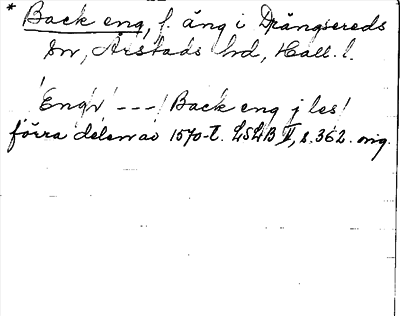 * Back eng, f. äng i Drängsereds
sn, Årstads hd, Hall. l.
'Engr' --- / Back eng j les /
förra delen av 1570-t. LSLB II, s. 362. orig.